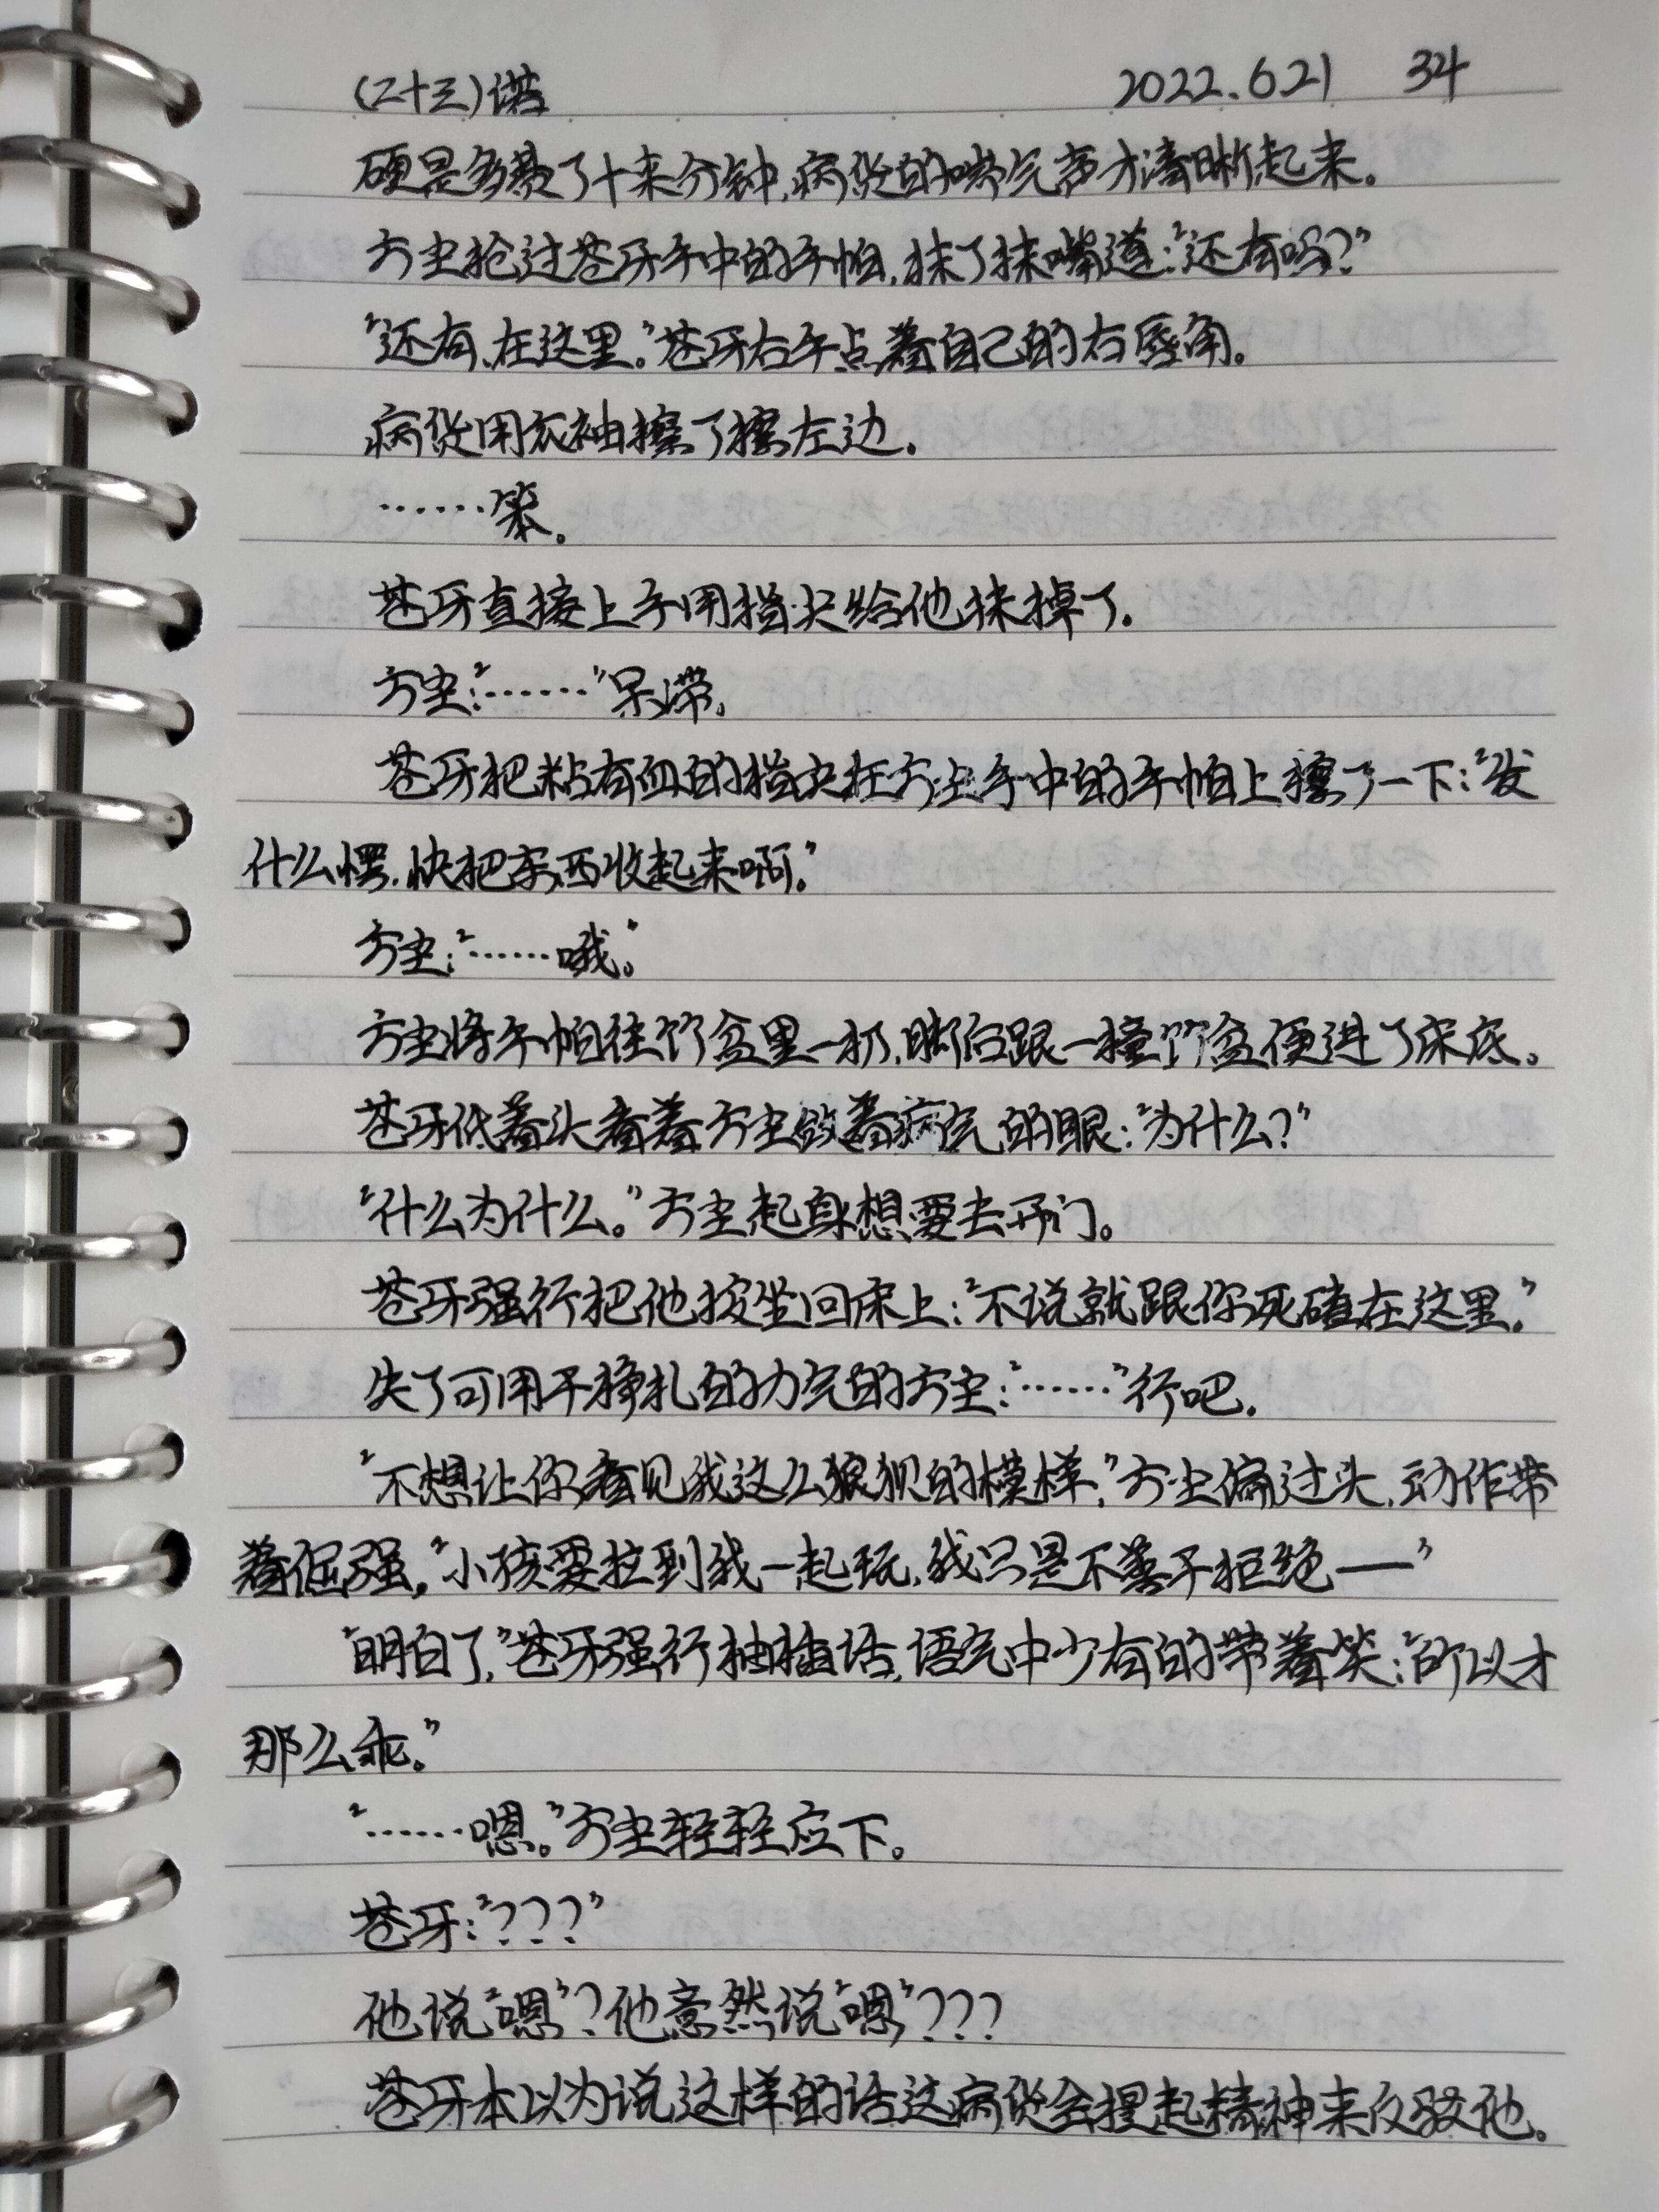 (二十三)诺 2022.6.21 34
硬是多费了十来分钟,病优的喘气声才清晰起来。
方尘抢过苍牙手中的手帕,抹了抹嘴道:“还有吗?”
“还有,在这里。”苍牙右手点着自己的右唇角。
病优用衣袖擦了擦左边。
……笨。
苍牙直接上手用指尖给他抹掉了。
方尘:“……”呆滞。
苍牙把粘有血的指尖在方尘手中的手帕上擦了一下:“发
什么愣,快把东西收起来啊。”
方尘:“……哦。”
方尘将手帕往竹盆里一扔,脚后跟一撞竹盆便进了床底。
苍牙低着头看着方尘敛着病气的眼:“为什么?”
“什么为什么。”方尘起身想要去开门。
苍牙强行把他按坐回床上:“不说就跟你死磕在这里。”
失了可用于挣扎的力气的方尘:“……”行吧。
“不想让你看见我这么狼狈的模样,”方尘偏过头,动作带
着倔强,“小孩要拉到我一起玩,我只是不善于拒绝——”
“明白了,”苍牙强行抽插话,语气中少有的带着笑:“所以才
那么乖。”
“……嗯。”方尘轻轻应下。
苍牙:“???”
他说“嗯”?他竟然说“嗯”???
苍牙本以为说这样的话这病优会提起精神来反驳他。